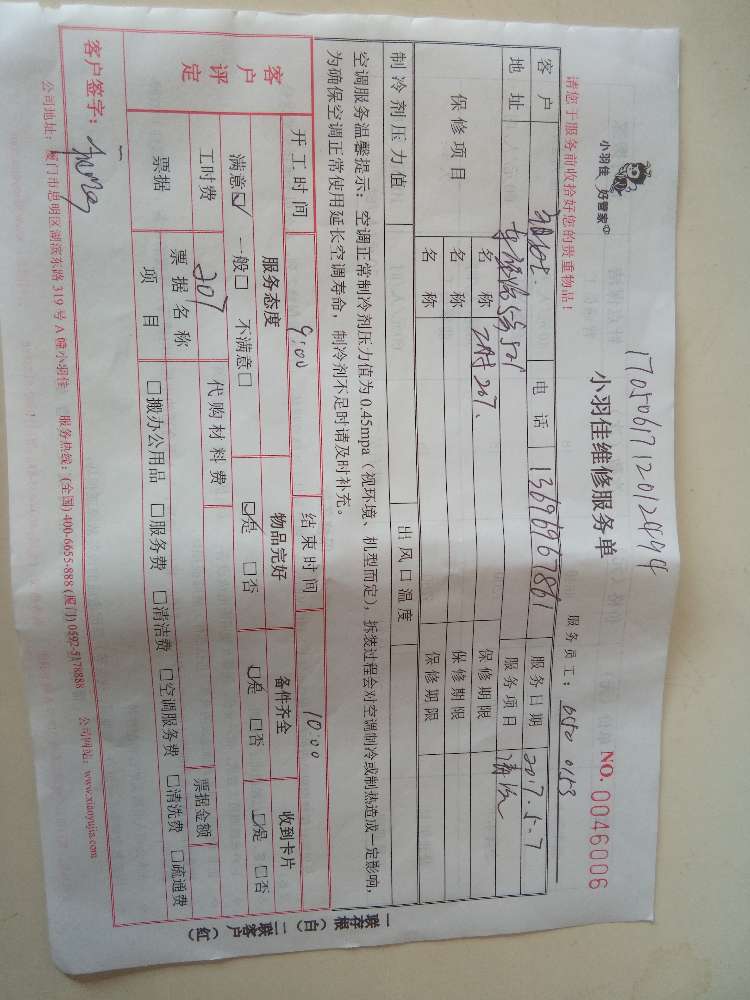 17050617120124994
小羽佳 好管家
小羽佳维修服务单
NO. 0046006
请您于服务前收拾好您的贵重物品!
服务员工: 0153
客户 电话 13696967861 服务日期 2017.5.7
地址 服务项目 清洗
保修项目 名称 保修期限
名称 保修期限
名称 保修期限
制冷剂压力值 出风口温度
空调服务温馨提示:空调正常制冷剂压力值为0.45mpa(视环境、机型而定),拆装过程会对空调制冷或制热造成一定影响,
为确保空调正常使用延长空调寿命,制冷剂不足时请及时补充。
开工时间 9:00 结束时间 10:00
客户评定 服务态度 物品完好 备件齐全 收到卡片
满意☑ 一般□ 不满意□ ☑是 □否 ☑是 □否 ☑是 □否
工时费 207 代购材料费
票据 票据名称 票据金额
项目 □搬办公用品 □服务费 □清洁费 □空调服务费 □清洗费 □疏通费
客户签字:
公司地址:厦门市思明区湖滨东路319号A幢小羽佳 服务热线:(全国)400-6655-888 (厦门)0592-5178888 公司网站:www.xiaoyujia.com
一联存根(白) 二联客户(红)